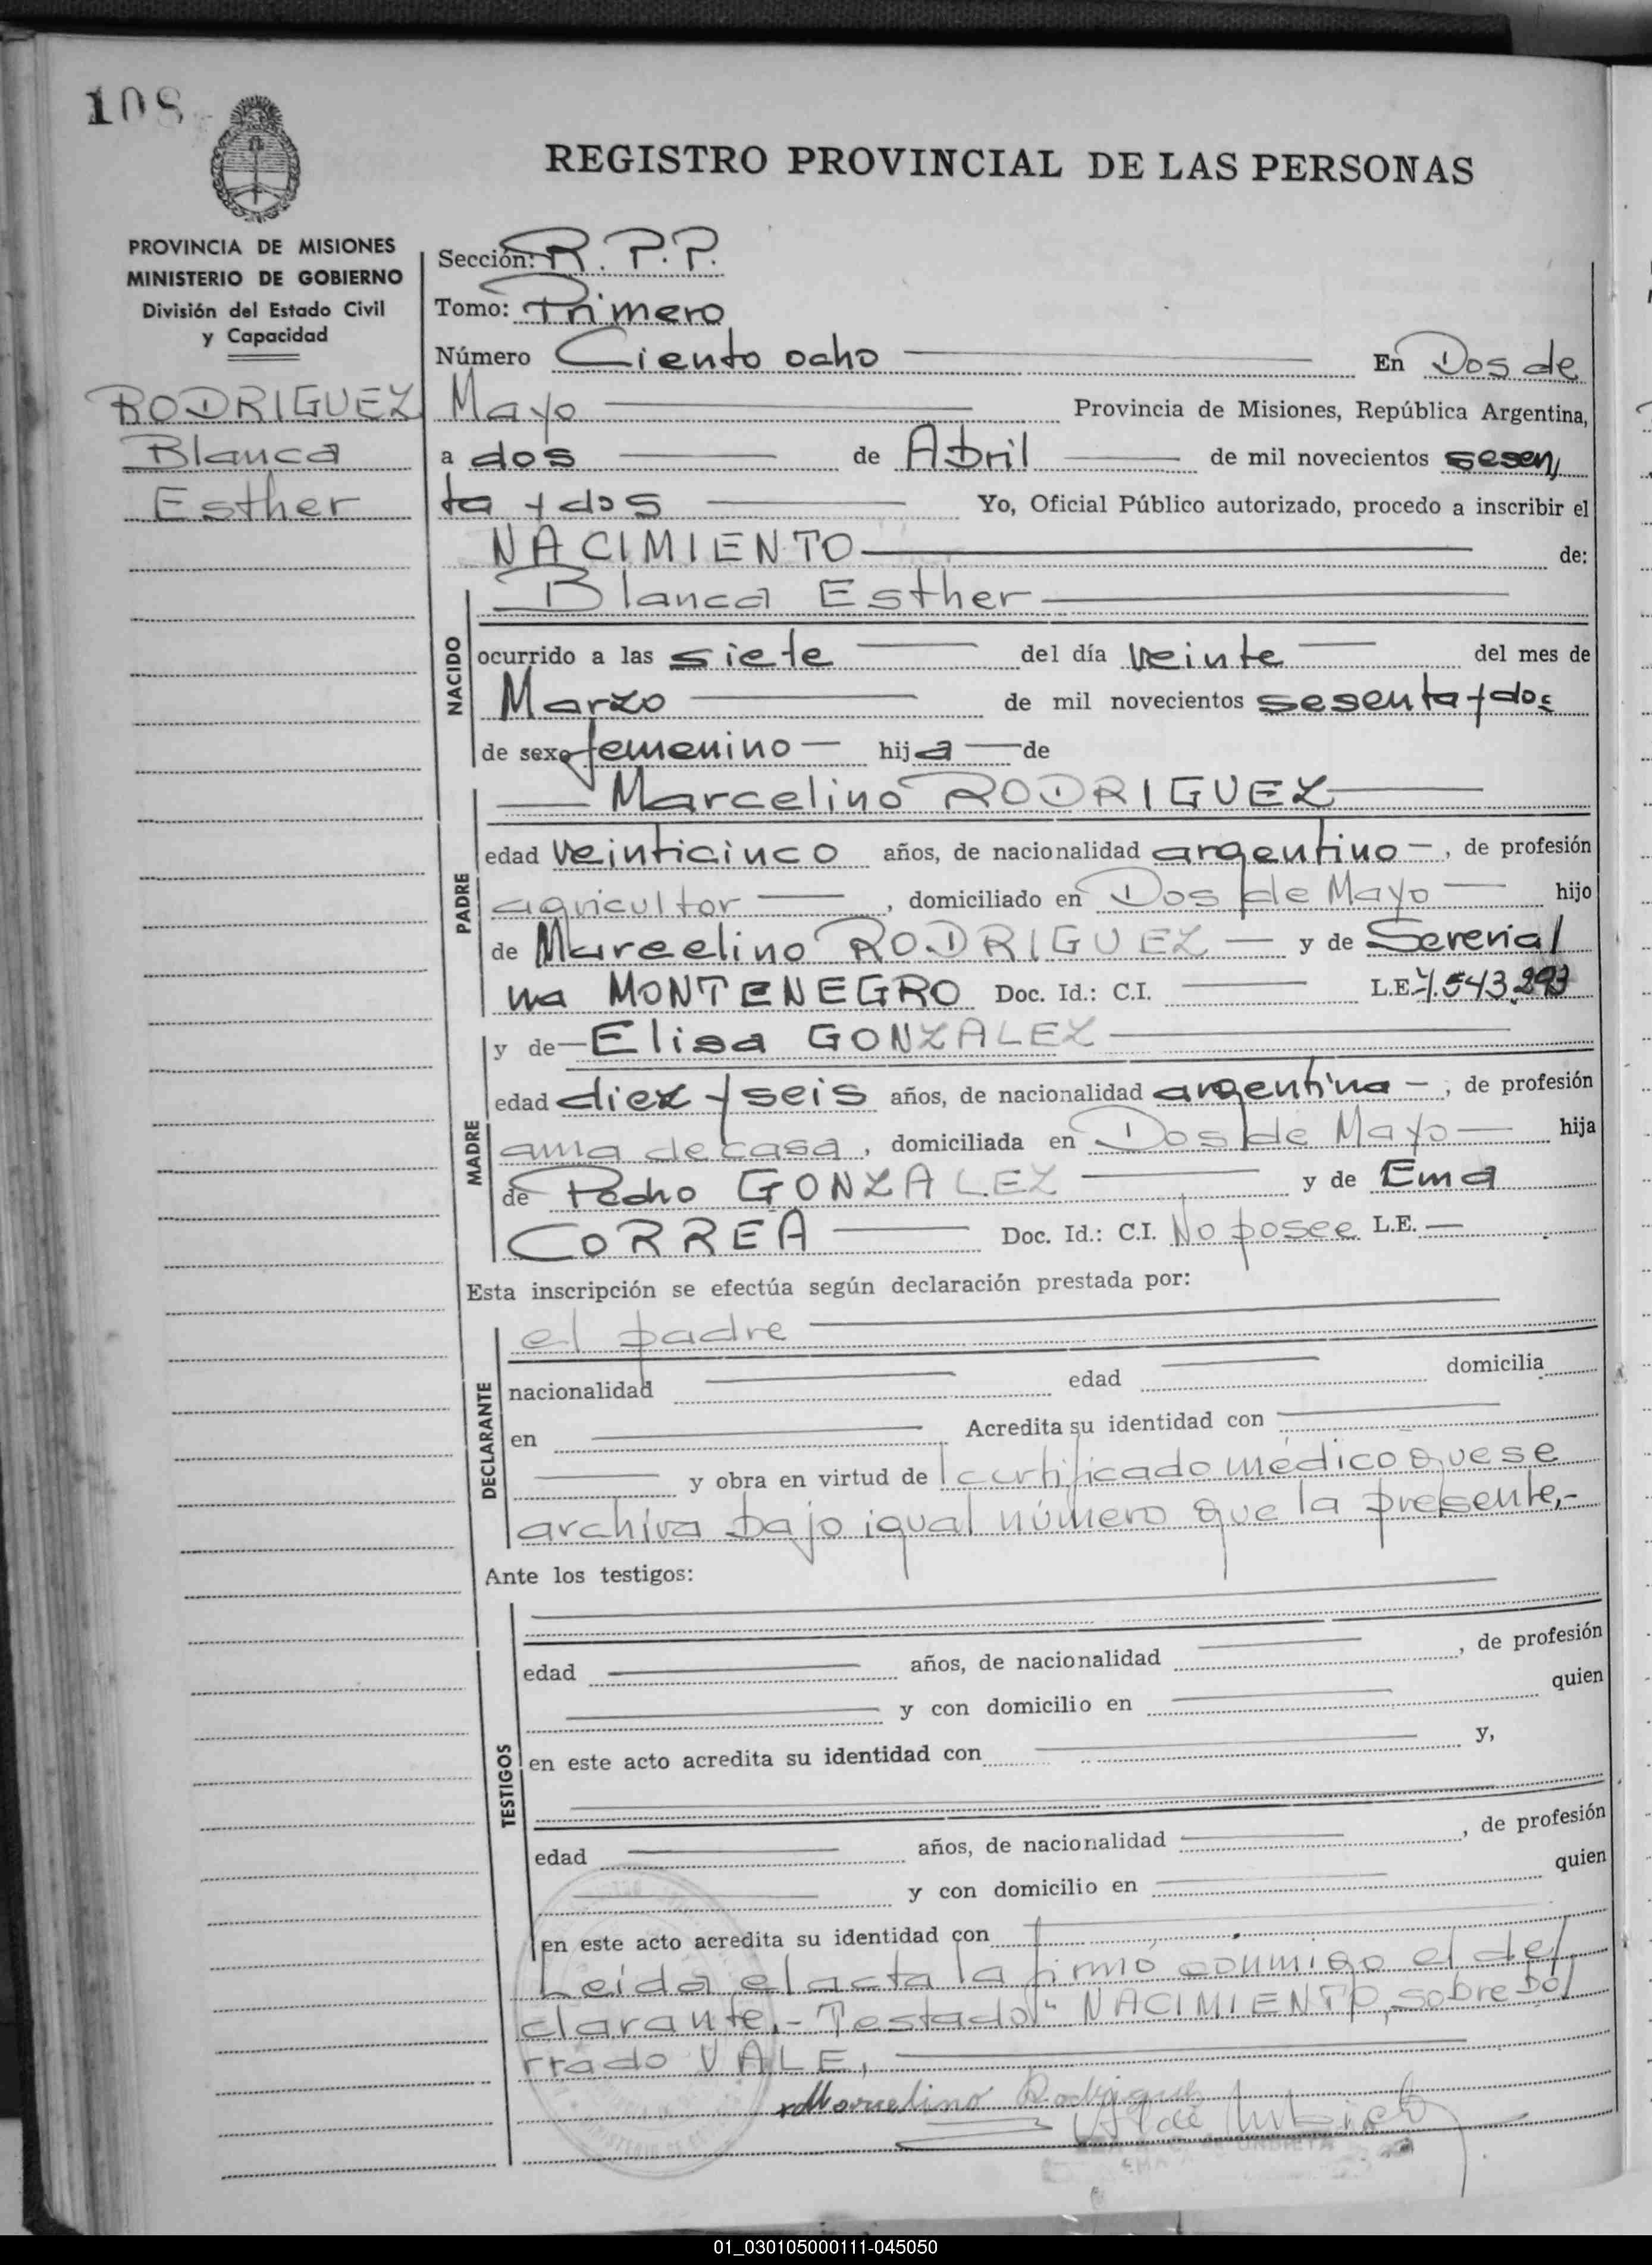 108
REGISTRO PROVINCIAL DE LAS PERSONAS
PROVINCIA DE MISIONES
MINISTERIO DE GOBIERNO
División del Estado Civil
y Capacidad
RODRIGUEZ
Blanca
Esther
Sección: R. P. P.
Tomo: Primero
Número Ciento ocho En Dos de
Mayo Provincia de Misiones, República Argentina,
a dos de Abril de mil novecientos sesen
ta y dos Yo, Oficial Público autorizado, procedo a inscribir el
NACIMIENTO de:
NACIDO
Blanca Esther
ocurrido a las siete del día veinte del mes de
Marzo de mil novecientos sesenta y dos
de sexo femenino hija de
PADRE
Marcelino RODRIGUEZ
edad veinticinco años, de nacionalidad argentino, de profesión
agricultor, domiciliado en Dos de Mayo hijo
de Marcelino RODRIGUEZ y de Sereria
na MONTENEGRO Doc. Id.: C.I. L.E. 7.543.293
MADRE
y de Elisa GONZALEZ
edad diez y seis años, de nacionalidad argentina, de profesión
ama de casa, domiciliada en Dos de Mayo hija
de Pedro GONZALEZ y de Ema
CORREA Doc. Id.: C.I. No posee L.E.
Esta inscripción se efectúa según declaración prestada por:
DECLARANTE
el padre
nacionalidad edad domicilia
en Acredita su identidad con
y obra en virtud de certificado médico que se
archiva bajo igual número que la presente.-
Ante los testigos:
TESTIGOS
edad años, de nacionalidad , de profesión
y con domicilio en quien
en este acto acredita su identidad con y,
edad años, de nacionalidad , de profesión
y con domicilio en quien
en este acto acredita su identidad con
Leida el acta la firmó conmigo el de
clarante.- Testado: "NACIMIENTO, sobre bo
rrado VALE,
Marcelino Rodriguez
01_030105000111-045050